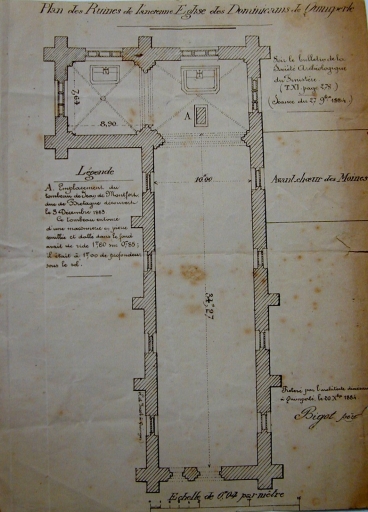 Plan des Ruines de l'ancienne Eglise des Dominicains de Quimperlé
Voir le bulletin de la
Société Archéologique
du Finistère
(T. XI. page 276)
(Séance du 27 9bre 1884)
7.64
8,90
A
Légende
A. Emplacement du
tombeau de Jean de Montfort
duc de Bretagne découvert
le 3 Décembre 1883
Ce tombeau entouré
d'une maçonnerie en pierre
et dalle dans le fond
avait de vide 1m80 sur 0m55;
il était à 1m00 de profondeur
sous le sol.
10m00
Avant-choeur des Moines
34m27
par l'architecte
à Quimperlé, le 20 Xbre 1884
Bigot
Echelle de 0m04 par mètre